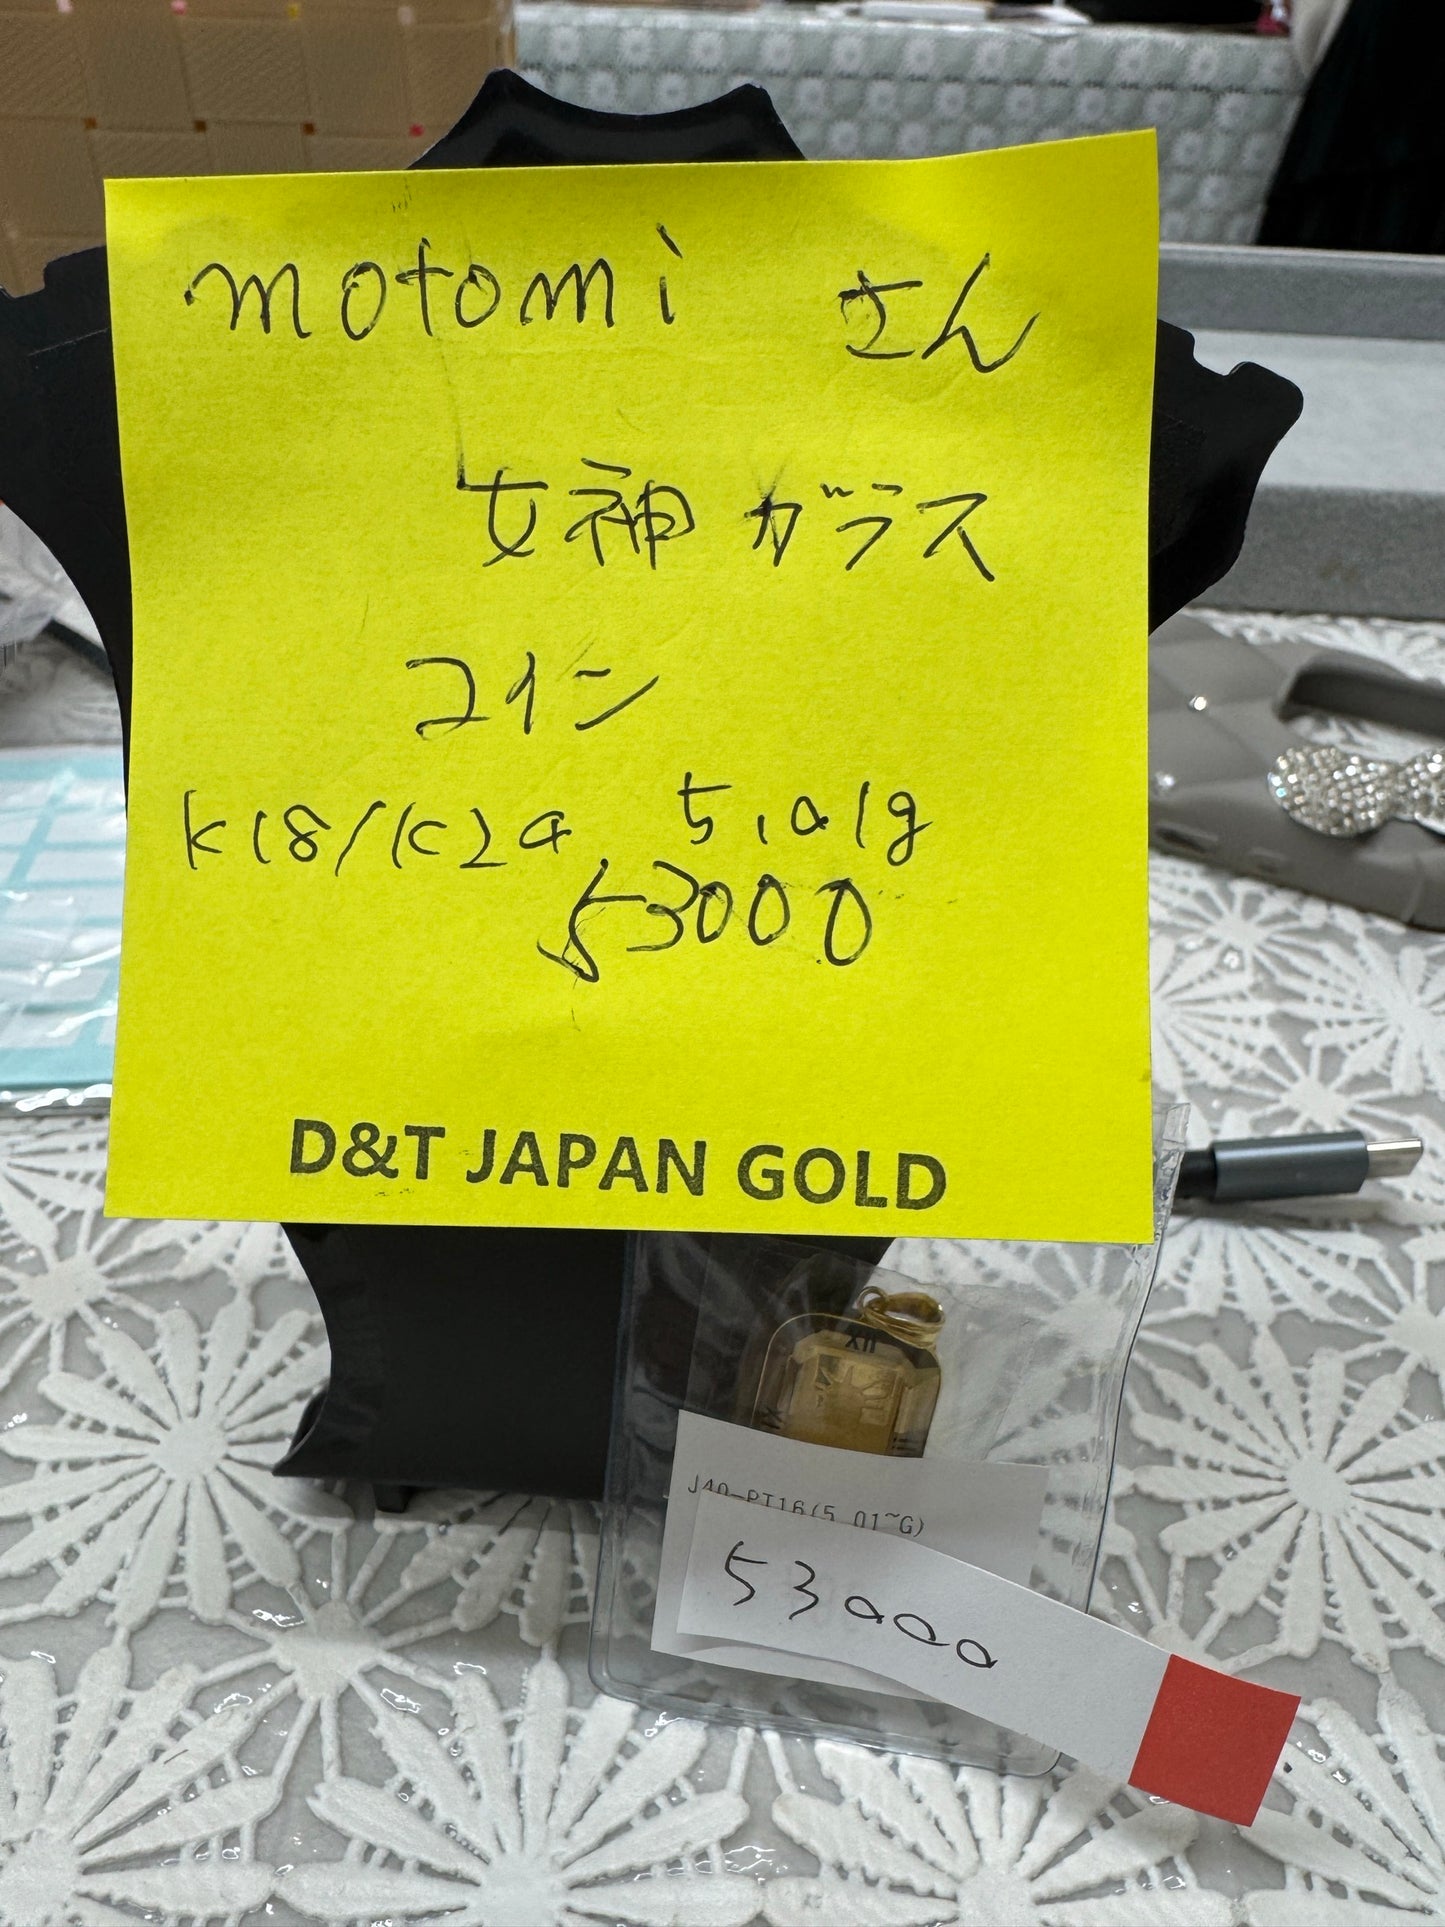 motomi さん
女神 ガラス
コイン
K18/K24 5.01g
53000
D&T JAPAN GOLD
XII
IX
III
J40-PT16(5.01~G)
53000